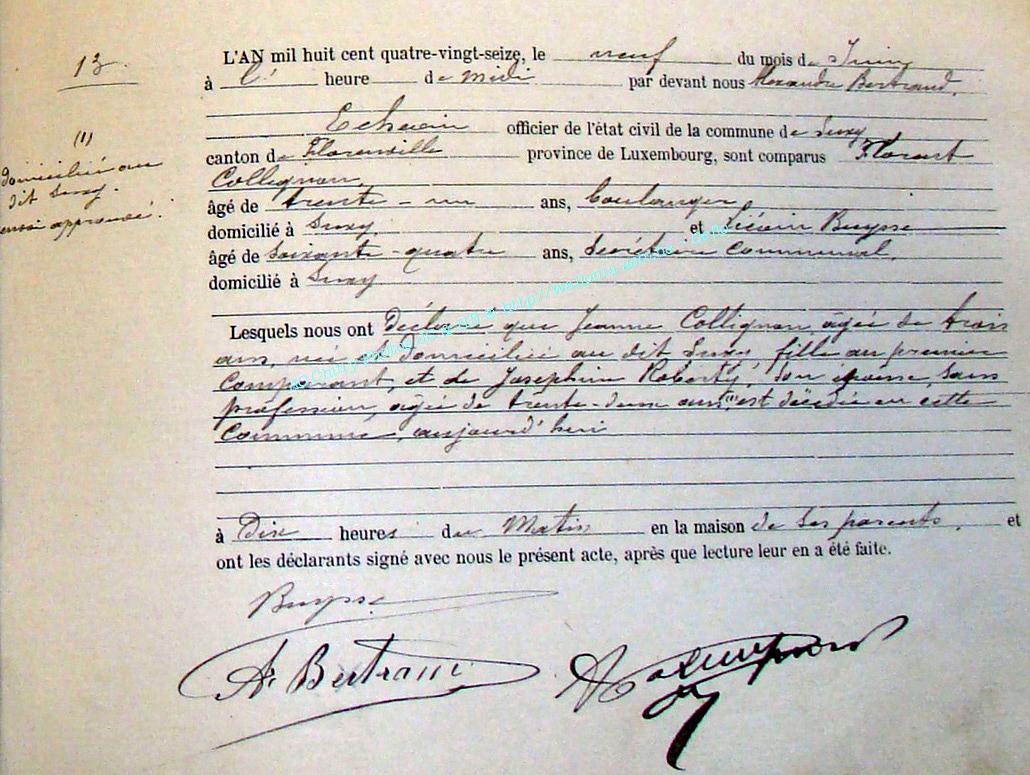 13.
L'AN mil huit cent quatre-vingt-seize, le neuf du mois de Juin
à l' heure de midi par devant nous Alexandre Bertrand,
Echevin officier de l'état civil de la commune de Suxy
canton de Florenville province de Luxembourg, sont comparus Florent
Collignon,
âgé de trente-un ans, boulanger
domicilié à Suxy et Liévin Buysse
âgé de soixante-quatre ans, Secrétaire Communal,
domicilié à Suxy
(1)
domicilié au
dit Suxy.
approuvé.
Lesquels nous ont déclaré que Jeanne Collignon, âgée de trois
ans, née et domiciliée au dit Suxy, fille du premier
Comparant, et de Josephine Roberty, son épouse, sans
profession, âgée de trente-deux ans, (1) est décédée en cette
Commune, aujourd'hui
à Dix heures du Matin en la maison de ses parents, et
ont les déclarants signé avec nous le présent acte, après que lecture leur en a été faite.
Buysse
A. Bertrand